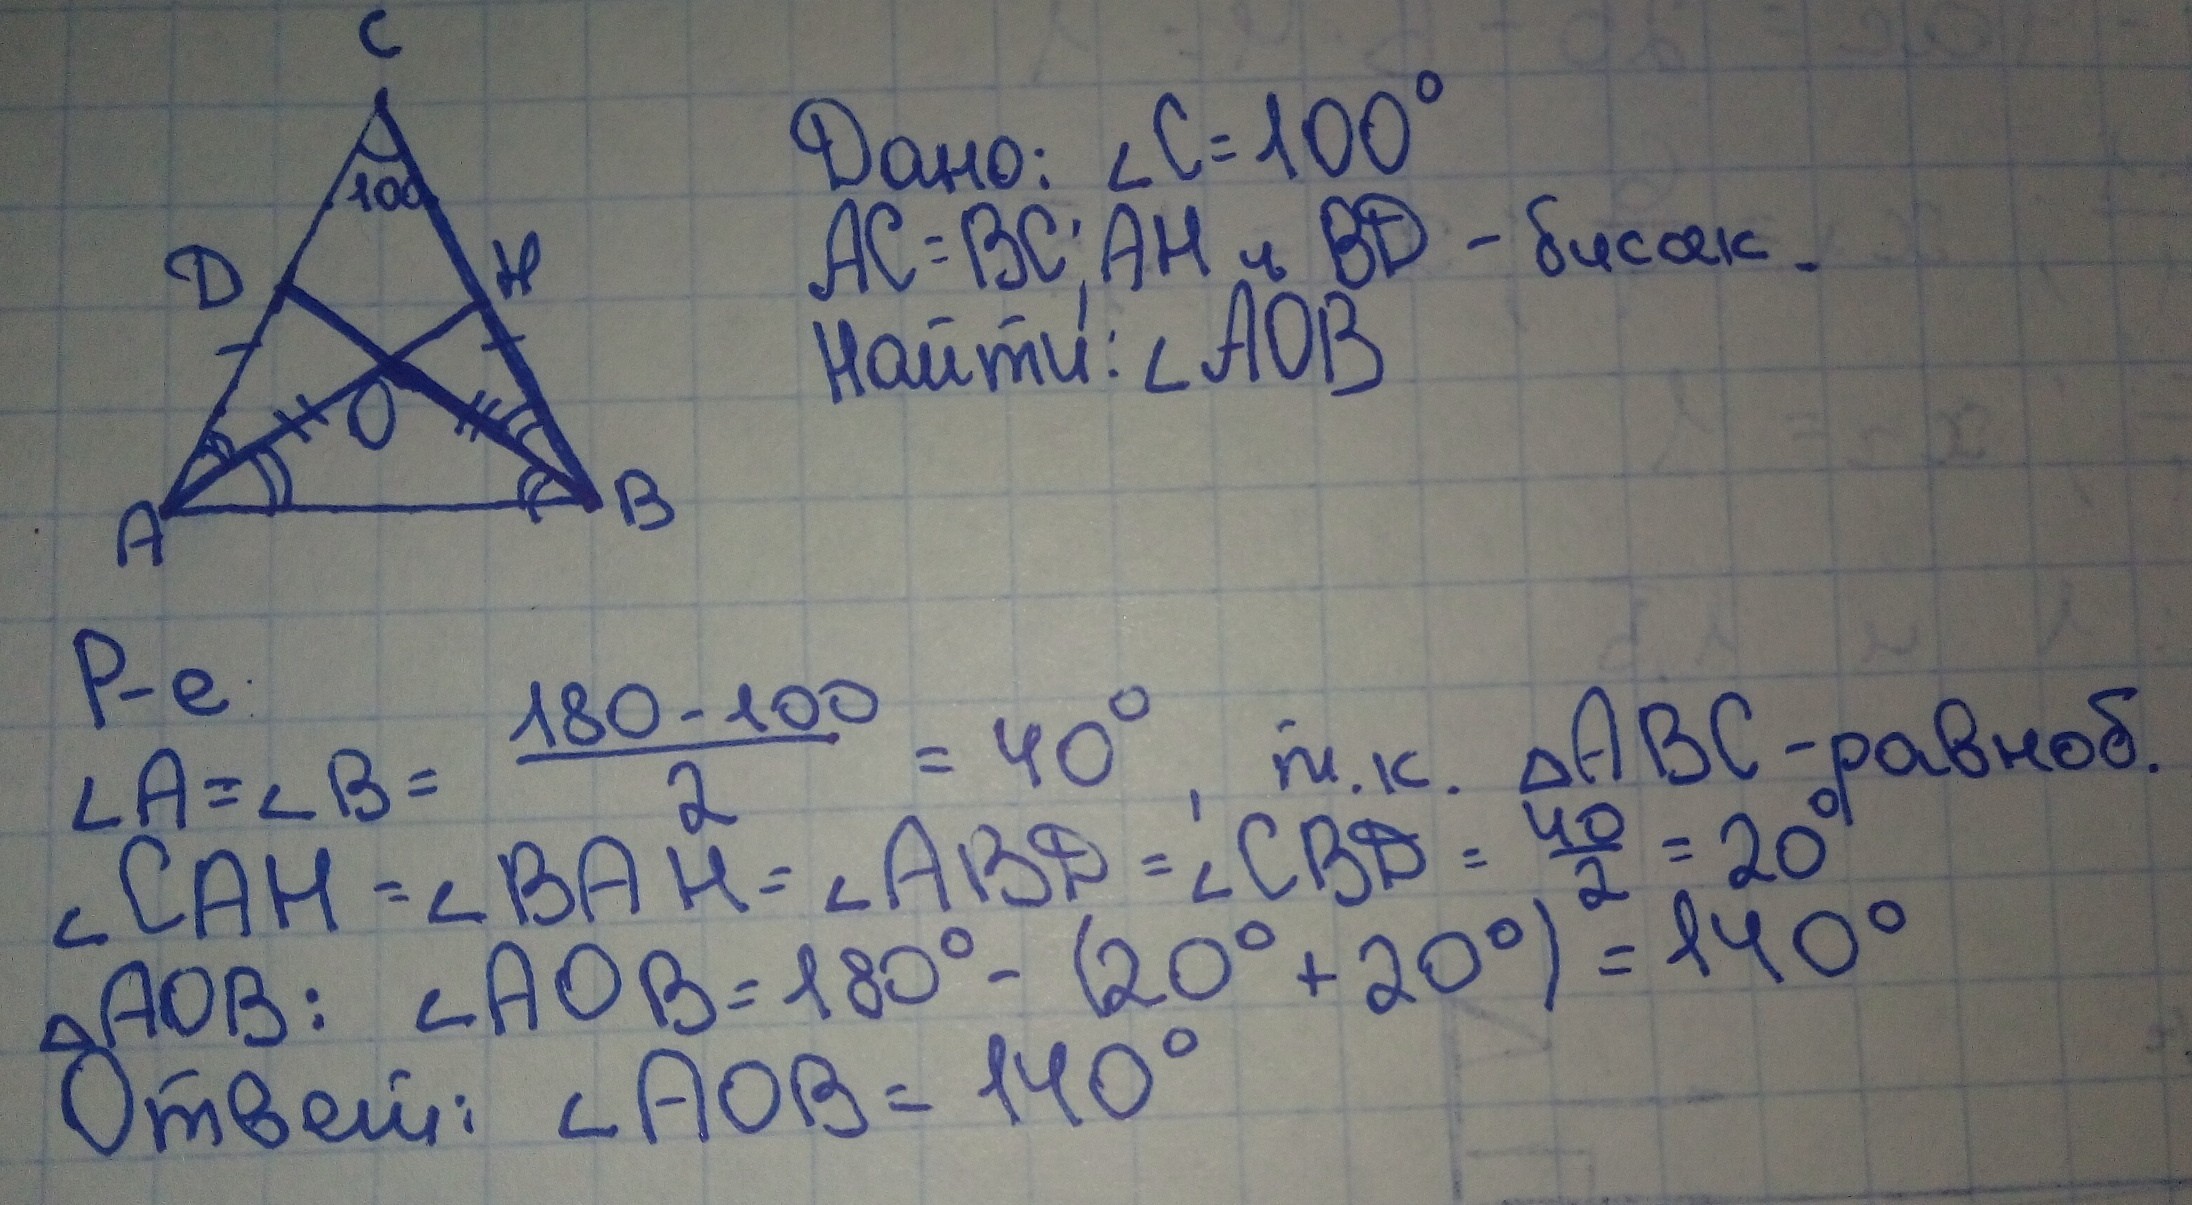 C
100
D
H
O
A
B
Дано: ∠C=100°
AC=BC; AH и BD - бисек.
Найти: ∠AOB
Р-е:
∠A=∠B= (180-100)/2 = 40°, т.к. △ABC-равноб.
∠CAH=∠BAH=∠ABD=∠CBD= 40/2 = 20°
△AOB: ∠AOB=180°-(20°+20°)=140°
Ответ: ∠AOB=140°